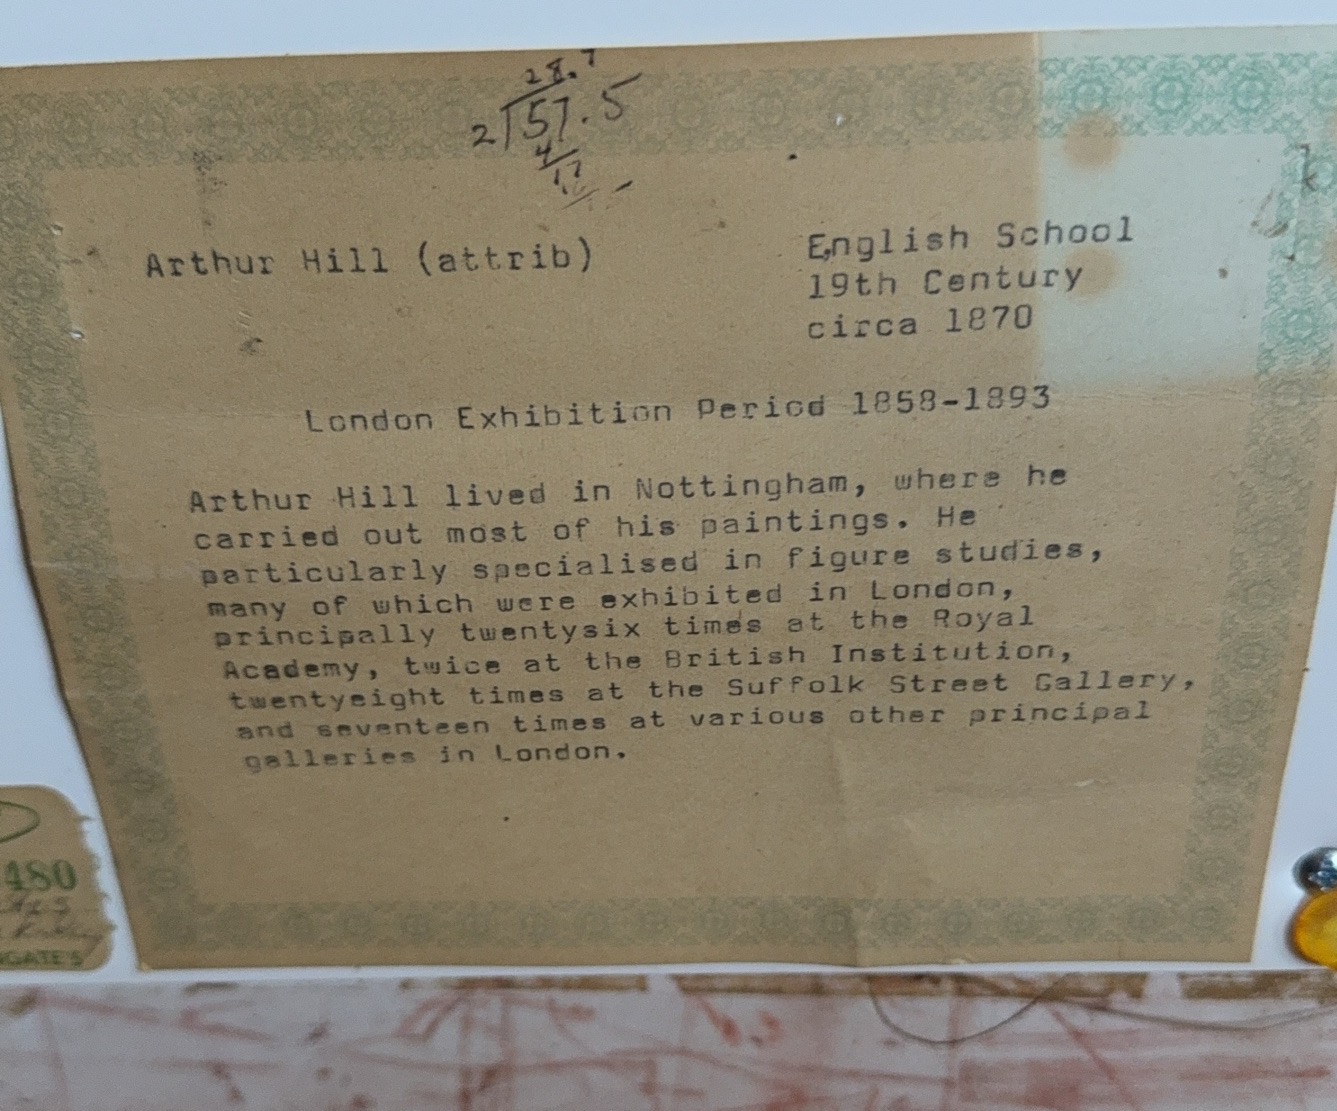 28.7
2 57.5
4
17
Arthur Hill (attrib)
English School
19th Century
circa 1870
London Exhibition Period 1858-1893
Arthur Hill lived in Nottingham, where he
carried out most of his paintings. He
particularly specialised in figure studies,
many of which were exhibited in London,
principally twentysix times at the Royal
Academy, twice at the British Institution,
twentyeight times at the Suffolk Street Gallery,
and seventeen times at various other principal
galleries in London.
480
GATE'S